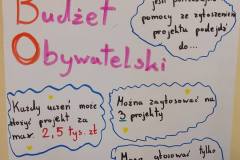 jeśli
pomocy ze zgłoszeniem
projektu podejdź
do...
Budżet
Obywatelski
Każdy uczeń może
złożyć projekt za
max. 2,5 tys. zł
Można zagłosować na
3 projekty
głosować tylko